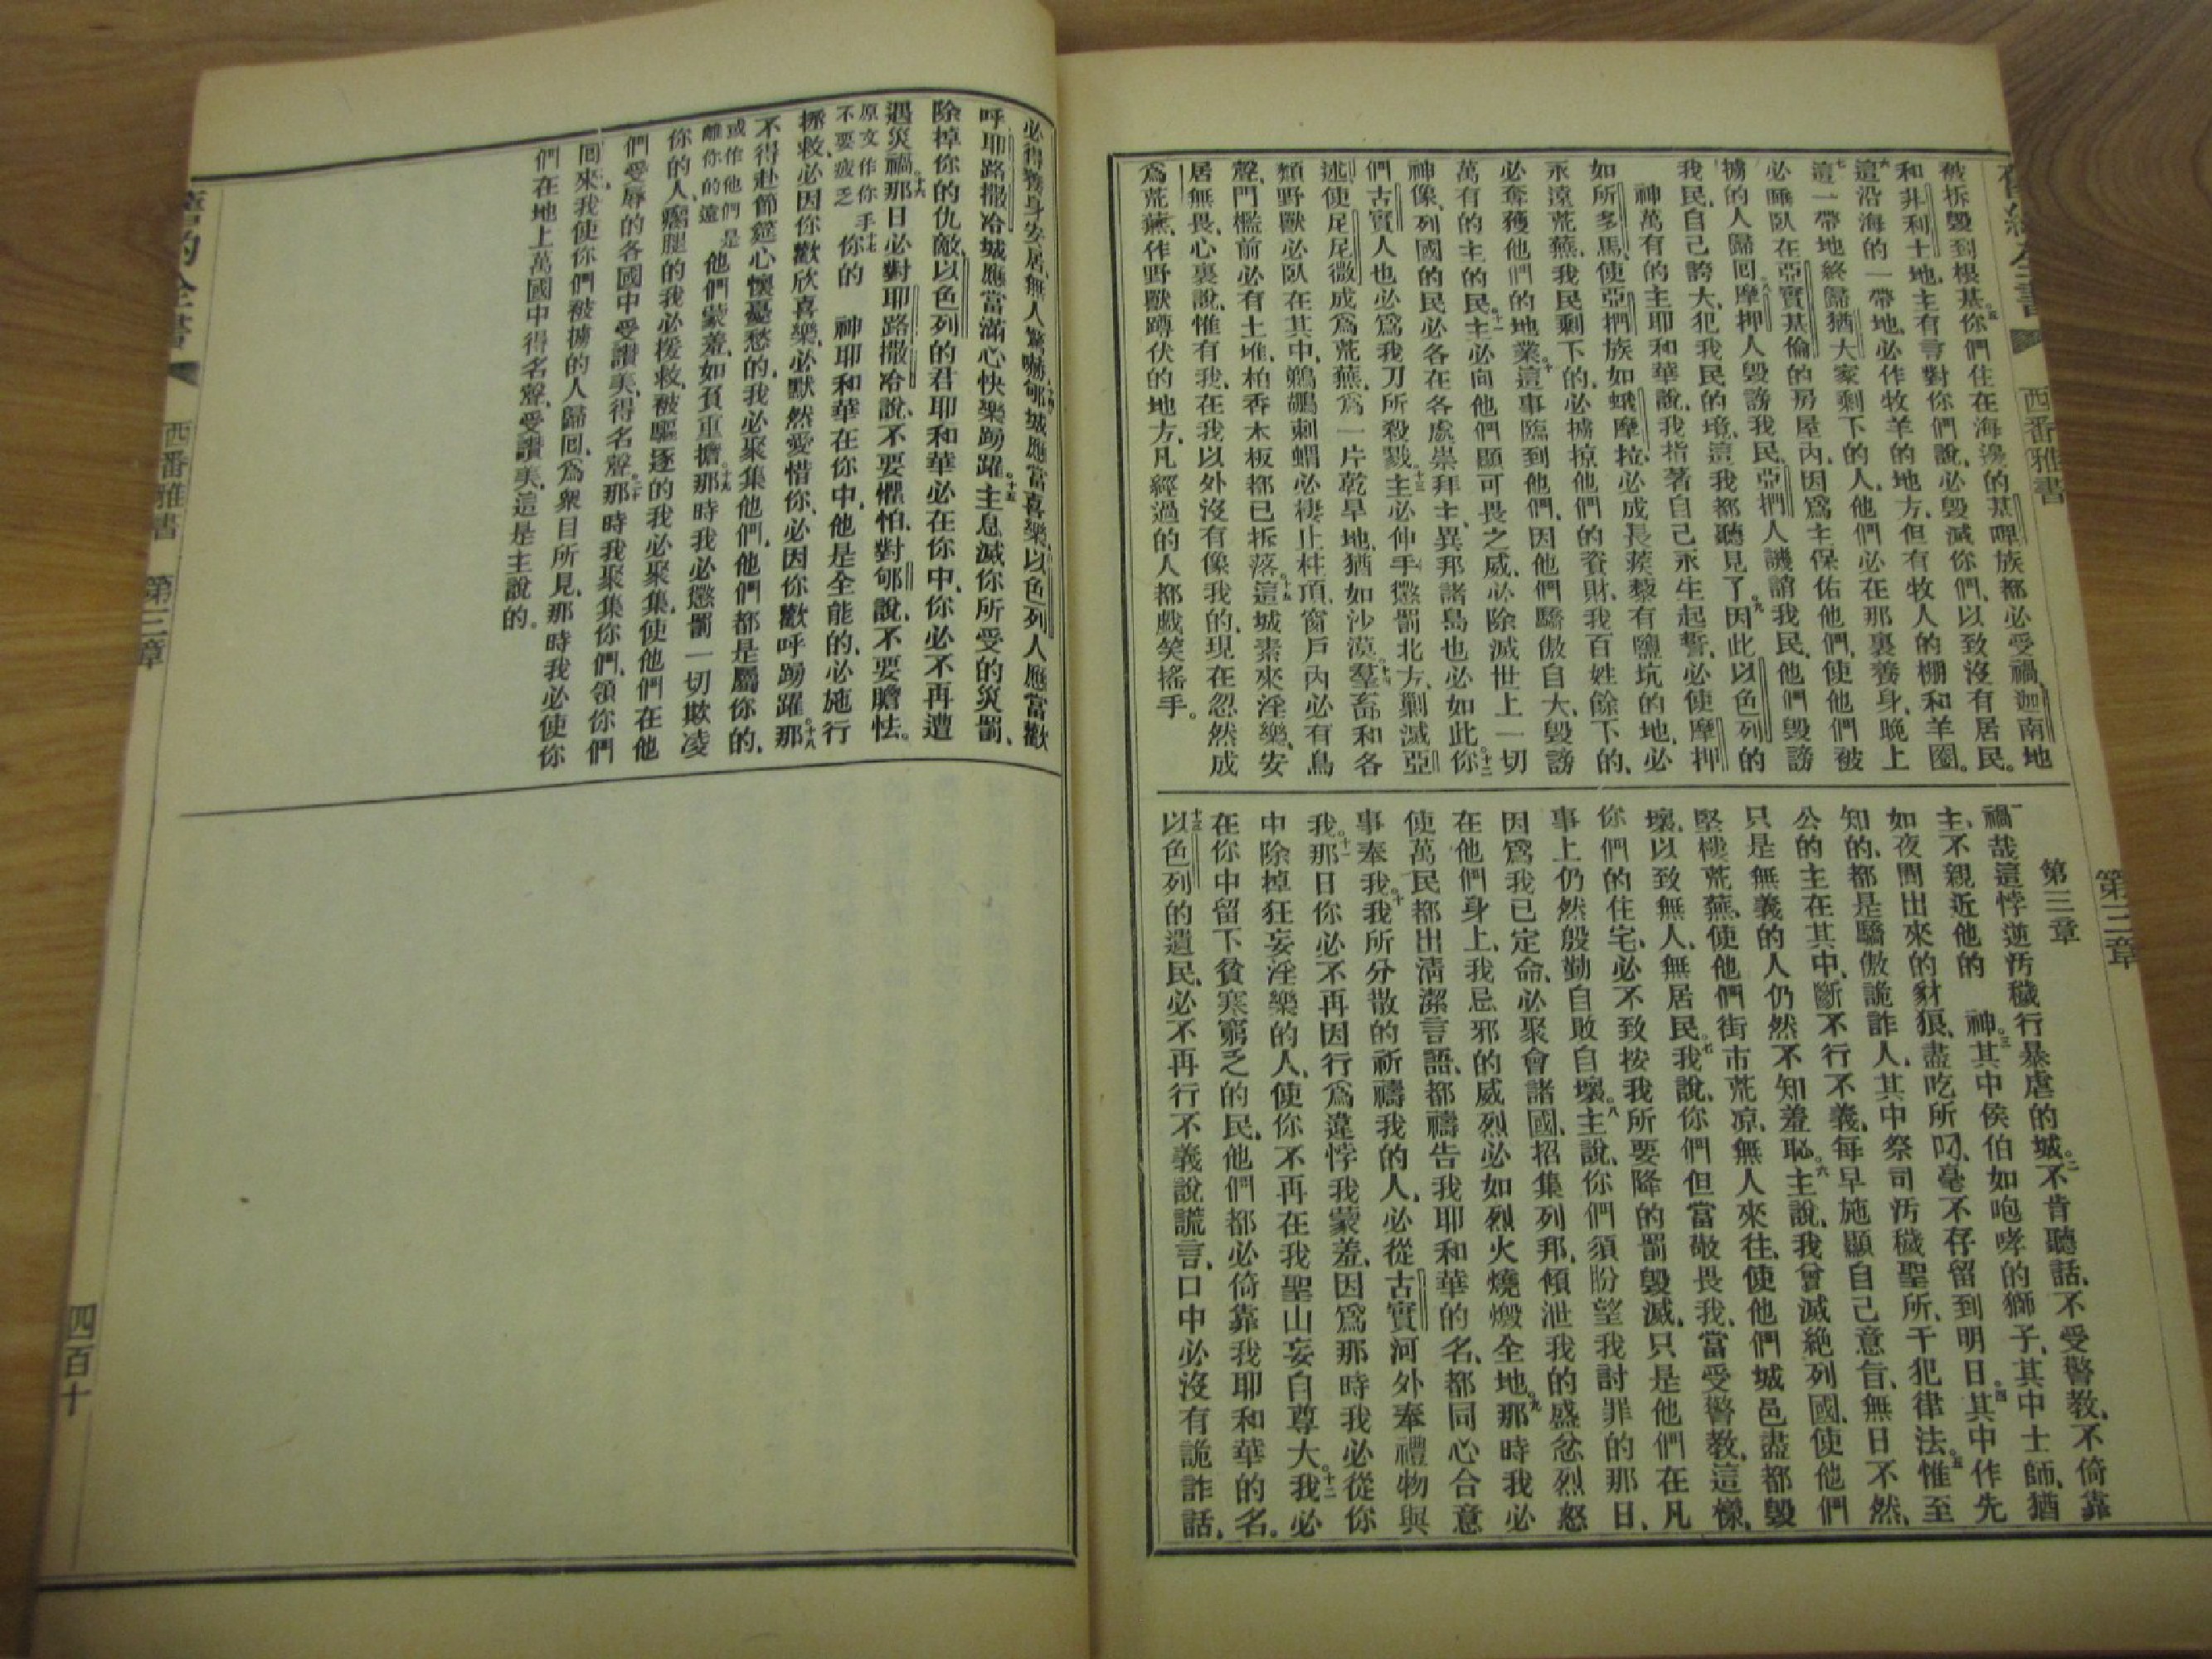 西番雅書
第三章
被拆毀到根基。五你們住在海邊的基哩族都必受禍、迦南地
和非利士地、主有言對你們說、必毀滅你們、以致沒有居民。
六這沿海的一帶地、必作牧羊的地方、但有牧人的棚和羊圈。
七這一帶地終歸猶大家剩下的人、他們必在那裏養身、晚上
必睡臥在亞實基倫的房屋內、因爲主保佑他們、使他們被
擄的人歸回。八摩押人毀謗我民、亞捫人譏誚我民、他們毀謗
我民、自己誇大、犯我民的境、這我都聽見了。九因此以色列的
神萬有的主耶和華說、我指著自己永生起誓、必使摩押
如所多馬、使亞捫族如蛾摩拉、必成長蒺藜有鹽坑的地、必
永遠荒蕪、我民剩下的、必擄掠他們的資財、我百姓餘下的、
必奪獲他們的地業。十這事臨到他們、因他們驕傲自大、毀謗
萬有的主的民。十一主必向他們顯可畏之威、必除滅世上一切
神像、列國的民必各在各處崇拜主、異邦諸島也必如此。十二你
們古實人也必爲我刀所殺戮。十三主必伸手懲罰北方、剿滅亞
述、使尼尼微成爲荒蕪、爲一片乾旱地、猶如沙漠。十四羣畜和各
類野獸必臥在其中、鵜鶘刺蝟必棲止柱頂、窗戶內必有鳥
聲、門檻前必有土堆、柏香木板都已拆落。十五這城素來淫樂、安
居無畏、心裏說、惟有我、在我以外沒有像我的、現在忽然成
爲荒蕪、作野獸蹲伏的地方、凡經過的人都戲笑搖手。
第三章
一禍哉這悖逆汚穢行暴虐的城。二不肯聽話、不受警教、不倚靠
主、不親近他的 神。三其中侯伯如咆哮的獅子、其中士師、猶
如夜間出來的豺狼、盡吃所叼、毫不存留到明日。四其中作先
知的、都是驕傲詭詐人、其中祭司汚穢聖所、干犯律法。五惟至
公的主在其中、斷不行不義、每早施顯自己意旨、無日不然、
只是無義的人仍然不知羞恥。六主說、我曾滅絕列國、使他們
堅樓荒蕪、使他們街市荒凉、無人來往、使他們城邑盡都毀
壞、以致無人、無居民。七我說、你們但當敬畏我、當受警教、這樣、
你們的住宅、必不致按我所要降的罰毀滅、只是他們在凡
事上仍然殷勤自敗自壞。八主說、你們須盼望我討罪的那日、
因爲我已定命、必聚會諸國、招集列邦、傾泄我的盛忿烈怒
在他們身上、我忌邪的威烈必如烈火燒燬全地。九那時我必
使萬民都出清潔言語、都禱告我耶和華的名、都同心合意
事奉我。十我所分散的祈禱我的人、必從古實河外奉禮物與
我。十一那日你必不再因行爲違悖我蒙羞、因爲那時我必從你
中除掉狂妄淫樂的人、使你不再在我聖山妄自尊大。十二我必
在你中留下貧寒窮乏的民、他們都必倚靠我耶和華的名。
十三以色列的遺民、必不再行不義說謊言、口中必沒有詭詐話、
必得養身安居、無人驚嚇。十四郇城應當喜樂、以色列人應當歡
呼、耶路撒冷城應當滿心快樂踴躍。十五主息滅你所受的災罰、
除掉你的仇敵、以色列的君耶和華必在你中、你必不再遭
遇災禍。十六那日必對耶路撒冷說、不要懼怕、對郇說、不要膽怯。
原文作你手不要疲乏 十七你的 神耶和華在你中、他是全能的、必施行
拯救、必因你歡欣喜樂、必默然愛惜你、必因你歡呼踴躍。十八那
不得赴節筵心懷憂愁的、我必聚集他們、他們都是屬你的、
或作他們是離你的遠 他們蒙羞、如負重擔。十九那時我必懲罰一切欺凌
你的人、瘸腿的我必援救、被驅逐的我必聚集、使他們在他
們受辱的各國中受讚美、得名聲。二十那時我聚集你們、領你們
回來、我使你們被擄的人歸回、爲衆目所見、那時我必使你
們在地上萬國中得名聲、受讚美、這是主說的。
舊約全書
西番雅書
第三章
四百十